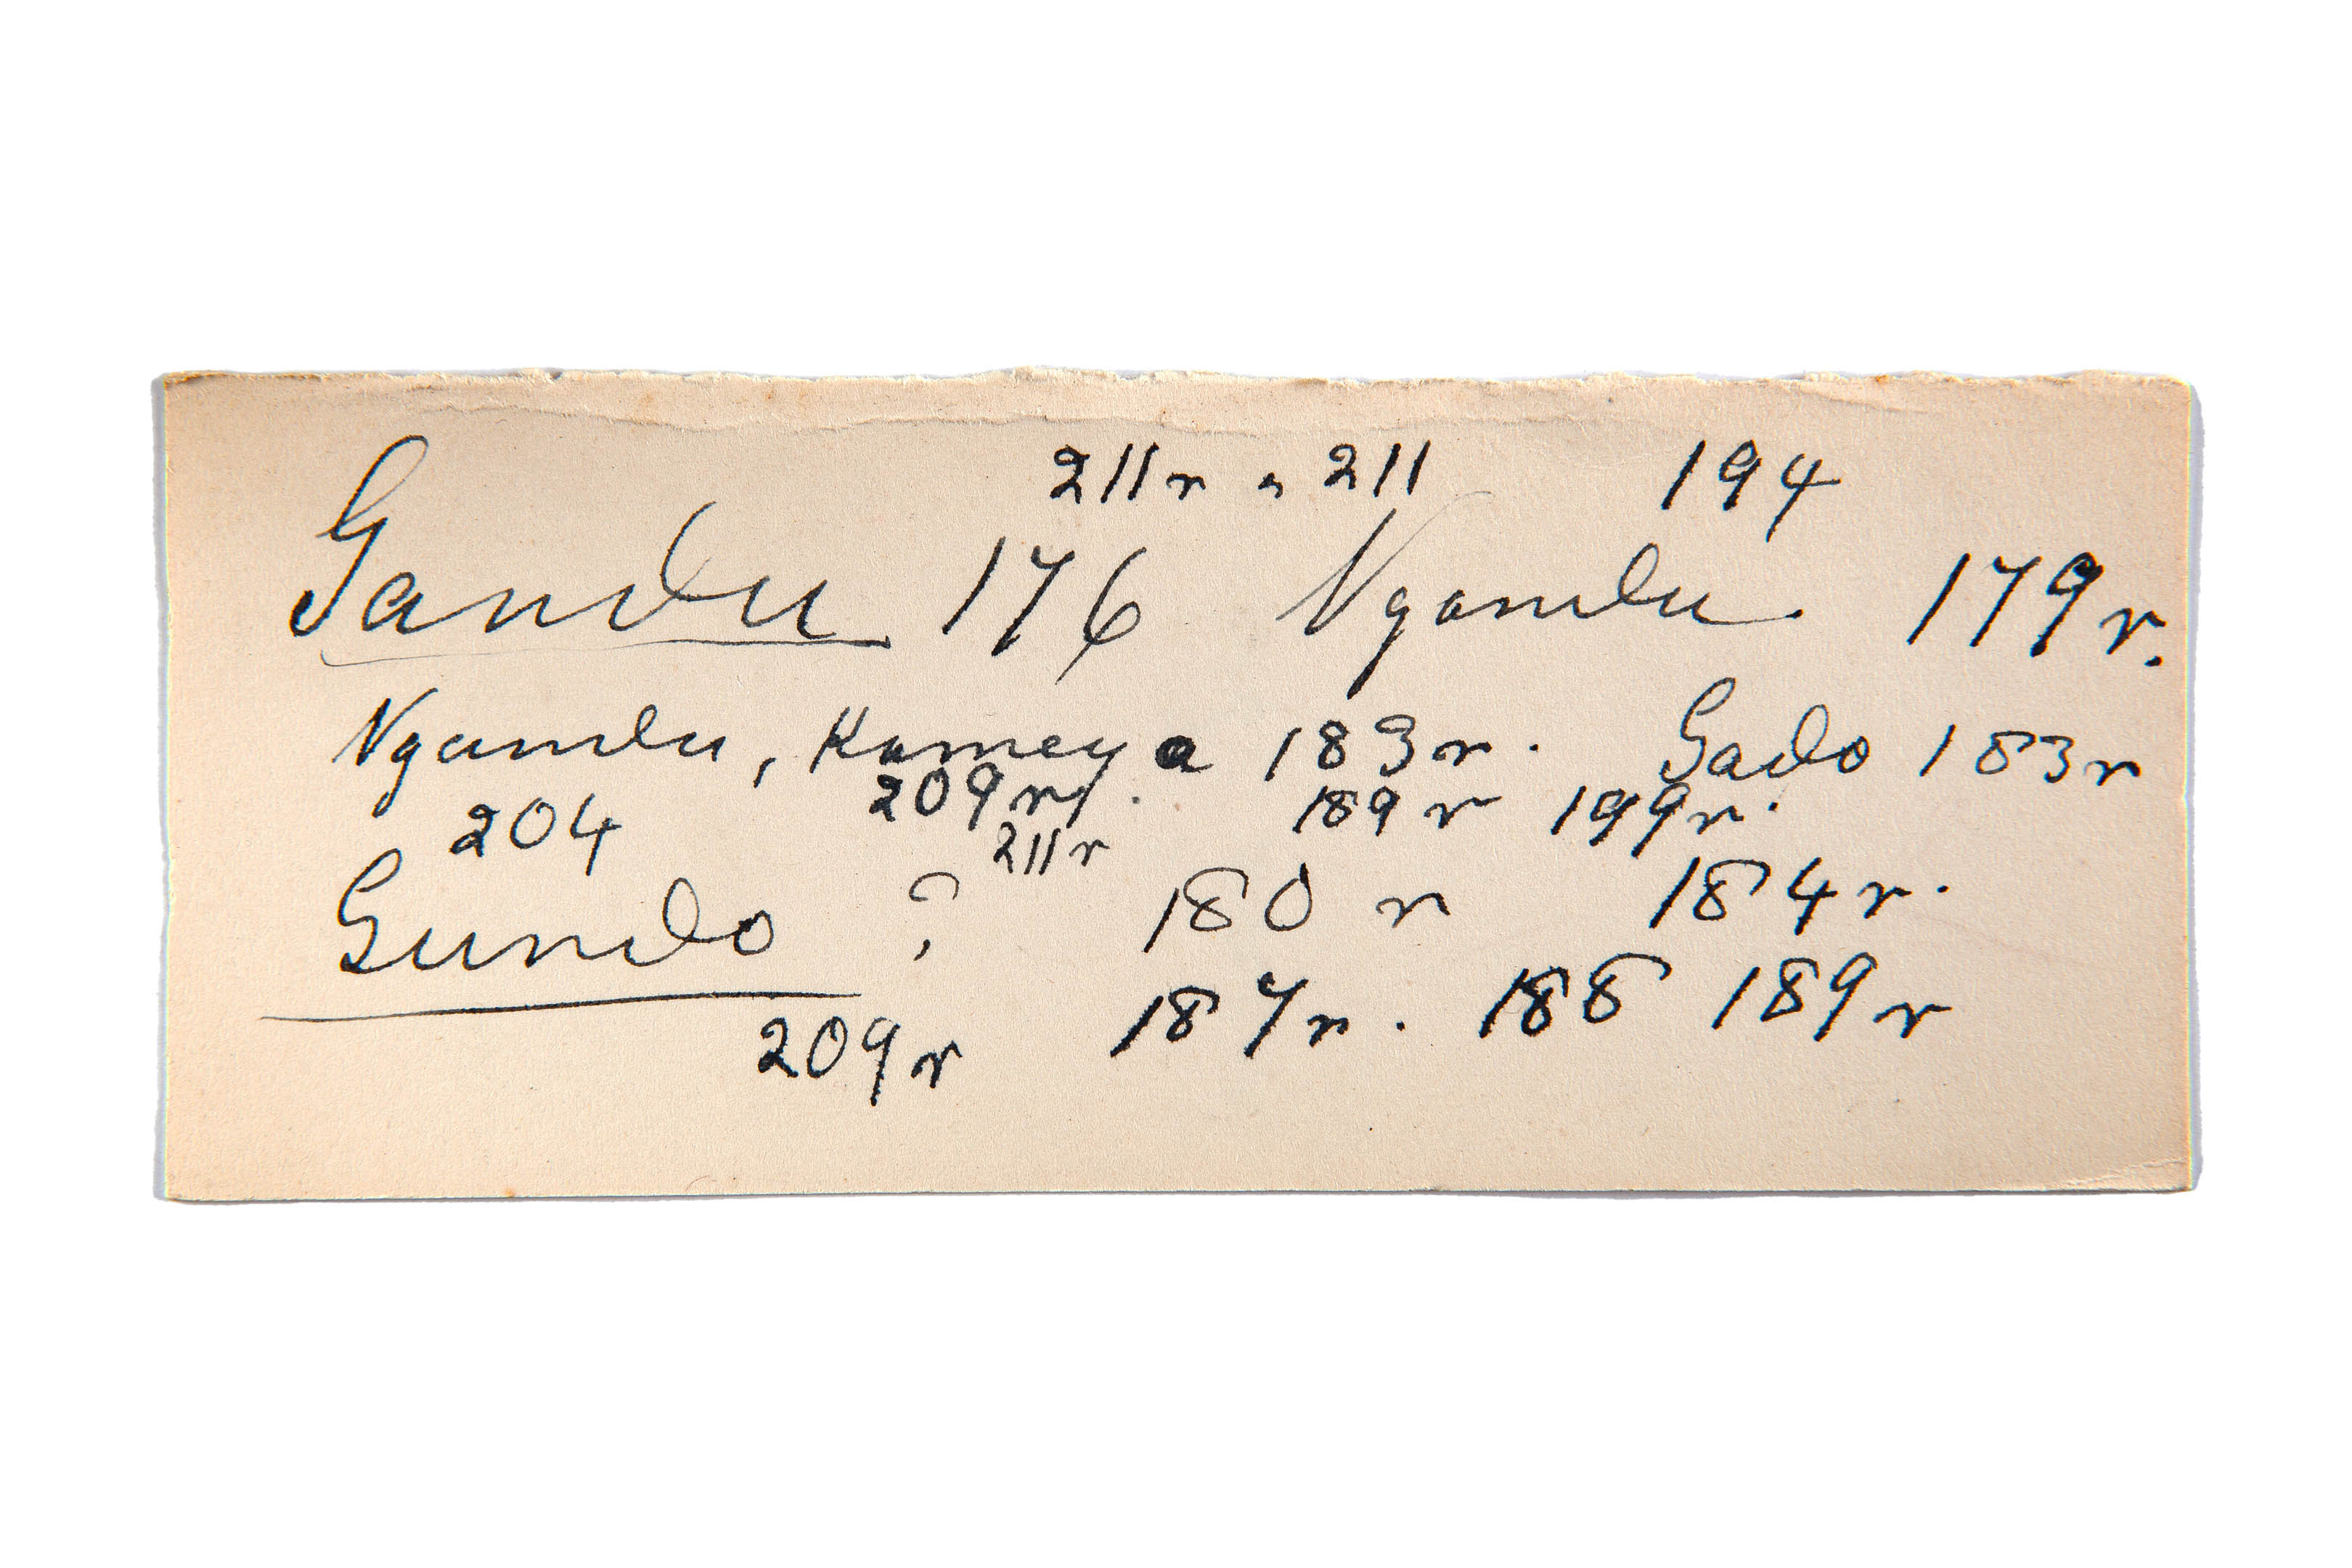 211r , 211 194
Gandu 176 Ngandu 179r.
Ngandu, Kameya 183r. Gado 183r
204 209r. 189r 199r.
211r
Gundo ? 180r 184r.
209r 187r. 188 189r